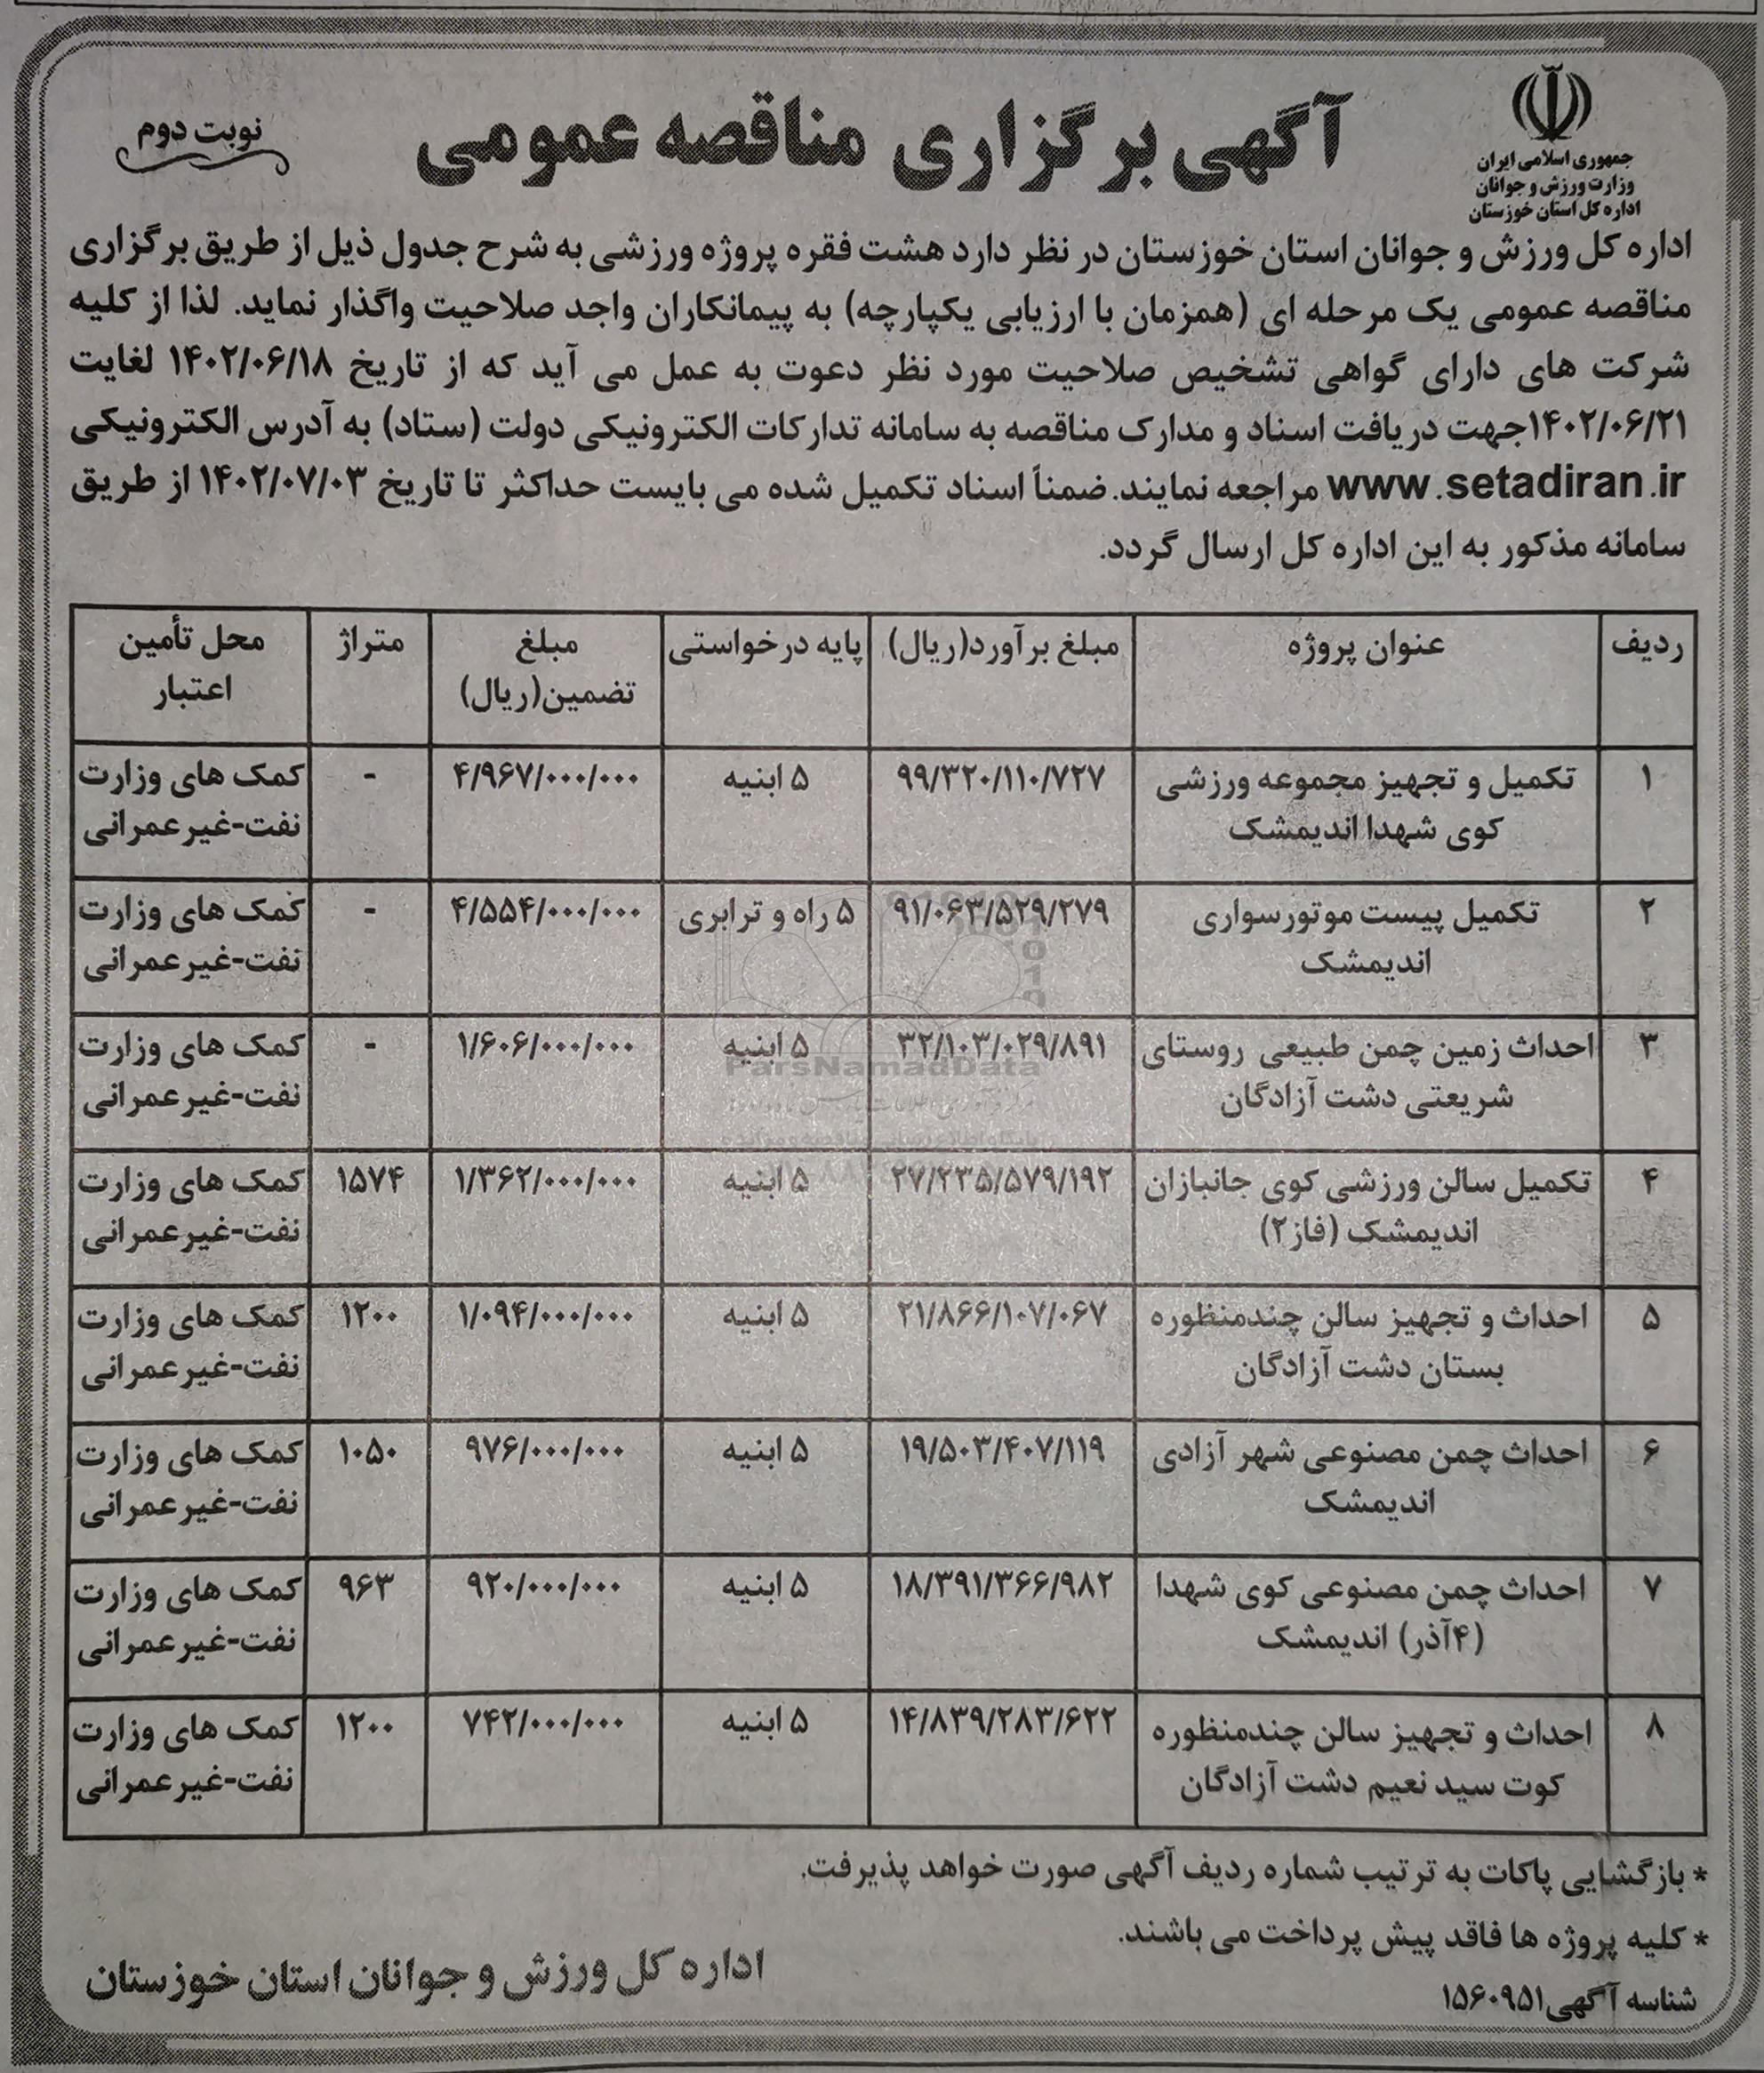 جمهوری اسلامی ایران
وزارت ورزش و جوانان
اداره کل استان خوزستان
آگهی برگزاری مناقصه عمومی
نوبت دوم
اداره کل ورزش و جوانان استان خوزستان در نظر دارد هشت فقره پروژه ورزشی به شرح جدول ذیل از طریق برگزاری
مناقصه عمومی یک مرحله ای (همزمان با ارزیابی یکپارچه) به پیمانکاران واجد صلاحیت واگذار نماید. لذا از کلیه
شرکت های دارای گواهی تشخیص صلاحیت مورد نظر دعوت به عمل می آید که از تاریخ ۱۴۰۲/۰۶/۱۸ لغایت
۱۴۰۲/۰۶/۲۱جهت دریافت اسناد و مدارک مناقصه به سامانه تدارکات الکترونیکی دولت (ستاد) به آدرس الکترونیکی
www.setadiran.ir مراجعه نمایند. ضمناً اسناد تکمیل شده می بایست حداکثر تا تاریخ ۱۴۰۲/۰۷/۰۳ از طریق
سامانه مذکور به این اداره کل ارسال گردد.
ردیف عنوان پروژه مبلغ برآورد(ریال) پایه درخواستی مبلغ متراژ محل تأمین
تضمین(ریال) اعتبار
۱ تکمیل و تجهیز مجموعه ورزشی ۹۹/۳۲۰/۱۱۰/۷۲۷ ۵ ابنیه ۴/۹۶۷/۰۰۰/۰۰۰ - کمک های وزارت
کوی شهدا اندیمشک نفت-غیرعمرانی
۲ تکمیل پیست موتورسواری ۹۱/۰۶۳/۵۲۹/۲۷۹ ۵ راه و ترابری ۴/۵۵۴/۰۰۰/۰۰۰ - کمک های وزارت
اندیمشک نفت-غیرعمرانی
۳ احداث زمین چمن طبیعی روستای ۳۲/۱۰۳/۰۲۹/۸۹۱ ۵ ابنیه ۱/۶۰۶/۰۰۰/۰۰۰ - کمک های وزارت
شریعتی دشت آزادگان نفت-غیرعمرانی
۴ تکمیل سالن ورزشی کوی جانبازان ۲۷/۲۳۵/۵۷۹/۱۹۲ ۵ ابنیه ۱/۳۶۲/۰۰۰/۰۰۰ ۱۵۷۴ کمک های وزارت
اندیمشک (فاز۲) نفت-غیرعمرانی
۵ احداث و تجهیز سالن چندمنظوره ۲۱/۸۶۶/۱۰۷/۰۶۷ ۵ ابنیه ۱/۰۹۴/۰۰۰/۰۰۰ ۱۲۰۰ کمک های وزارت
بستان دشت آزادگان نفت-غیرعمرانی
۶ احداث چمن مصنوعی شهر آزادی ۱۹/۵۰۳/۴۰۷/۱۱۹ ۵ ابنیه ۹۷۶/۰۰۰/۰۰۰ ۱۰۵۰ کمک های وزارت
اندیمشک نفت-غیرعمرانی
۷ احداث چمن مصنوعی کوی شهدا ۱۸/۳۹۱/۳۶۶/۹۸۲ ۵ ابنیه ۹۲۰/۰۰۰/۰۰۰ ۹۶۳ کمک های وزارت
(۴آذر) اندیمشک نفت-غیرعمرانی
۸ احداث و تجهیز سالن چندمنظوره ۱۴/۸۳۹/۲۸۳/۶۲۲ ۵ ابنیه ۷۴۲/۰۰۰/۰۰۰ ۱۲۰۰ کمک های وزارت
کوت سید نعیم دشت آزادگان نفت-غیرعمرانی
ParsNamadData
* بازگشایی پاکات به ترتیب شماره ردیف آگهی صورت خواهد پذیرفت.
* کلیه پروژه ها فاقد پیش پرداخت می باشند.
شناسه آگهی۱۵۶۰۹۵۱
اداره کل ورزش و جوانان استان خوزستان